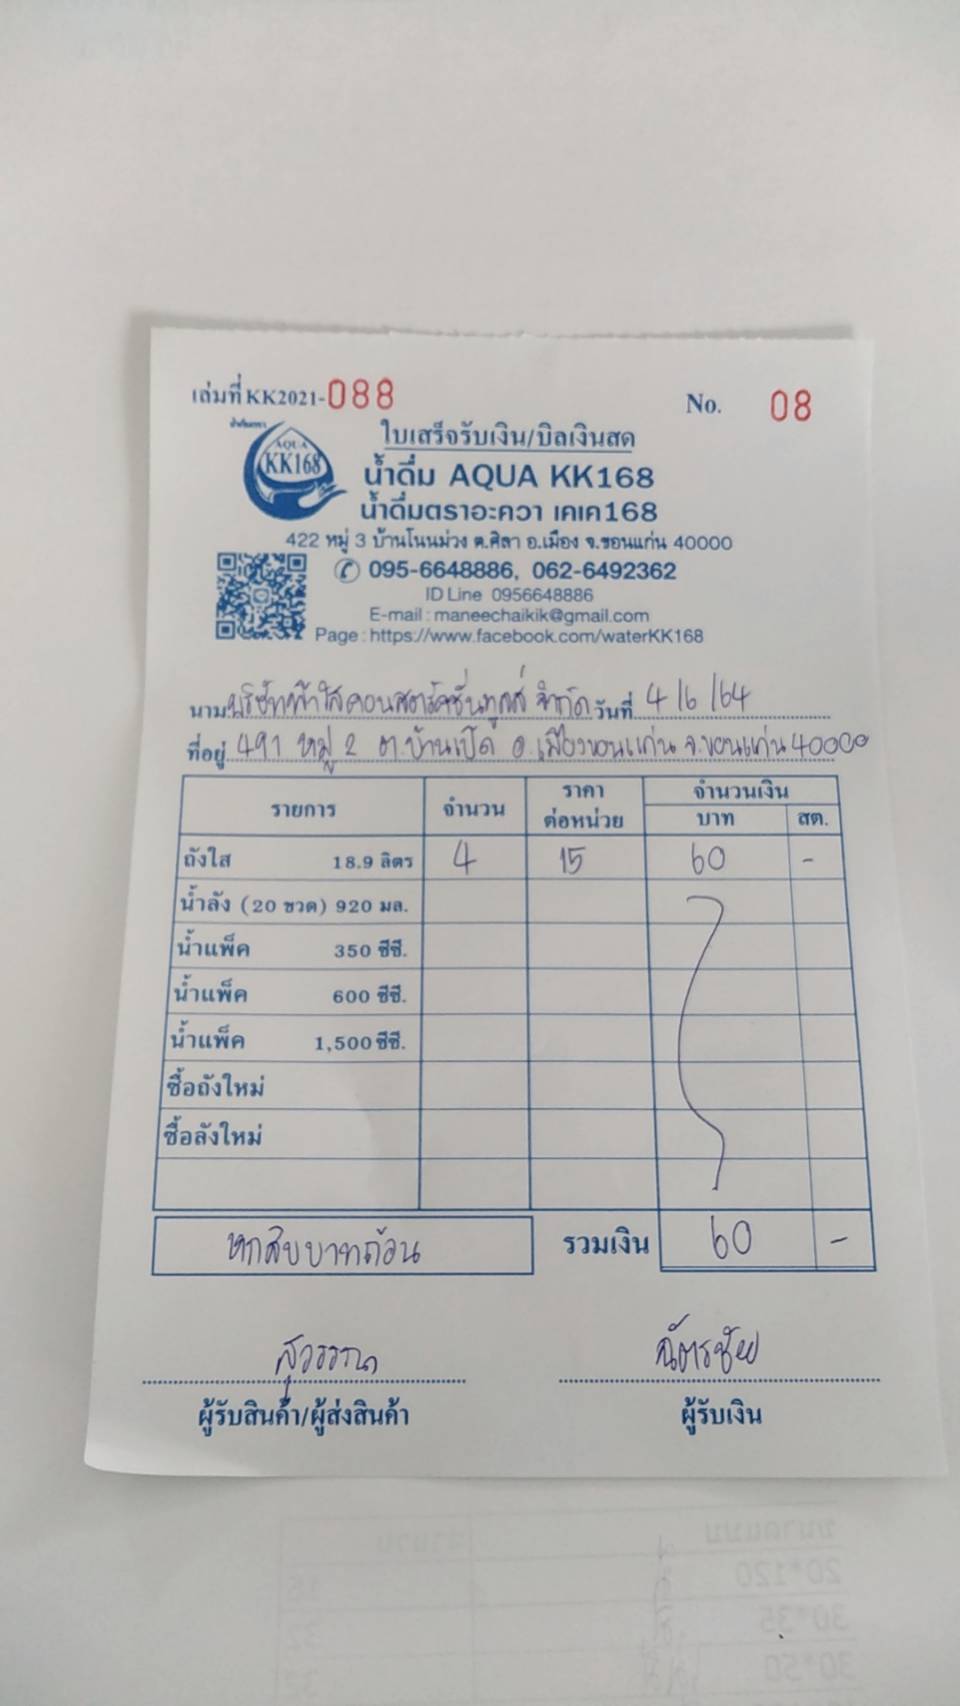 เล่มที่ KK2021-088 No. 08
ใบเสร็จรับเงิน/บิลเงินสด
AQUA
KK168
น้ำดื่ม AQUA KK168
น้ำดื่มตราอะควา เคเค168
422 หมู่ 3 บ้านโนนม่วง ต.ศิลา อ.เมือง จ.ขอนแก่น 40000
095-6648886, 062-6492362
ID Line 0956648886
E-mail : maneechaikik@gmail.com
Page : https://www.facebook.com/waterKK168
นาม บริษัทฟ้าใสคอนสตรัคชั่นทูลส์ จำกัด วันที่ 4/6/64
ที่อยู่ 491 หมู่ 2 ต.บ้านเป็ด อ.เมืองขอนแก่น จ.ขอนแก่น 40000
รายการ จำนวน ราคาต่อหน่วย จำนวนเงิน
บาท สต.
ถังใส 18.9 ลิตร 4 15 60 -
น้ำลัง (20 ขวด) 920 มล.
น้ำแพ็ค 350 ซีซี.
น้ำแพ็ค 600 ซีซี.
น้ำแพ็ค 1,500 ซีซี.
ซื้อถังใหม่
ซื้อลังใหม่
หกสิบบาทถ้วน รวมเงิน 60 -
สุวรรณา ฉัตรชัย
ผู้รับสินค้า/ผู้ส่งสินค้า ผู้รับเงิน
20*120
30*35
30*50